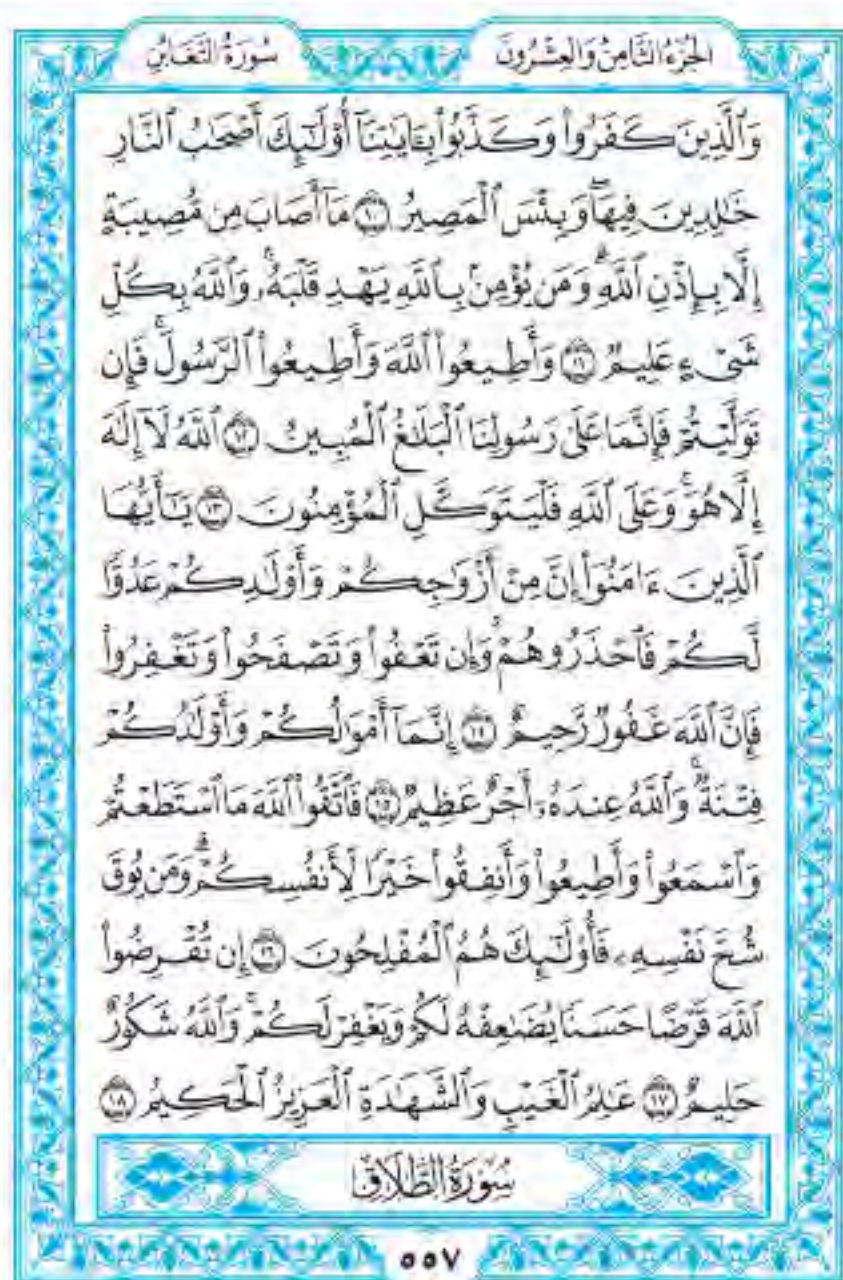 الجُزْءُ الثَّامِنُ وَالعِشْرُونَ سُورَةُ التَّغَابُنِ
وَٱلَّذِينَ كَفَرُوا۟ وَكَذَّبُوا۟ بِـَٔايَٰتِنَآ أُو۟لَٰٓئِكَ أَصْحَٰبُ ٱلنَّارِ
خَٰلِدِينَ فِيهَا ۖ وَبِئْسَ ٱلْمَصِيرُ ١٠ مَآ أَصَابَ مِن مُّصِيبَةٍ
إِلَّا بِإِذْنِ ٱللَّهِ ۗ وَمَن يُؤْمِنۢ بِٱللَّهِ يَهْدِ قَلْبَهُۥ ۚ وَٱللَّهُ بِكُلِّ
شَىْءٍ عَلِيمٌ ١١ وَأَطِيعُوا۟ ٱللَّهَ وَأَطِيعُوا۟ ٱلرَّسُولَ ۚ فَإِن
تَوَلَّيْتُمْ فَإِنَّمَا عَلَىٰ رَسُولِنَا ٱلْبَلَٰغُ ٱلْمُبِينُ ١٢ ٱللَّهُ لَآ إِلَٰهَ
إِلَّا هُوَ ۚ وَعَلَى ٱللَّهِ فَلْيَتَوَكَّلِ ٱلْمُؤْمِنُونَ ١٣ يَٰٓأَيُّهَا
ٱلَّذِينَ ءَامَنُوٓا۟ إِنَّ مِنْ أَزْوَٰجِكُمْ وَأَوْلَٰدِكُمْ عَدُوًّا
لَّكُمْ فَٱحْذَرُوهُمْ ۚ وَإِن تَعْفُوا۟ وَتَصْفَحُوا۟ وَتَغْفِرُوا۟
فَإِنَّ ٱللَّهَ غَفُورٌ رَّحِيمٌ ١٤ إِنَّمَآ أَمْوَٰلُكُمْ وَأَوْلَٰدُكُمْ
فِتْنَةٌ ۚ وَٱللَّهُ عِندَهُۥٓ أَجْرٌ عَظِيمٌ ١٥ فَٱتَّقُوا۟ ٱللَّهَ مَا ٱسْتَطَعْتُمْ
وَٱسْمَعُوا۟ وَأَطِيعُوا۟ وَأَنفِقُوا۟ خَيْرًا لِّأَنفُسِكُمْ ۗ وَمَن يُوقَ
شُحَّ نَفْسِهِۦ فَأُو۟لَٰٓئِكَ هُمُ ٱلْمُفْلِحُونَ ١٦ إِن تُقْرِضُوا۟
ٱللَّهَ قَرْضًا حَسَنًا يُضَٰعِفْهُ لَكُمْ وَيَغْفِرْ لَكُمْ ۚ وَٱللَّهُ شَكُورٌ
حَلِيمٌ ١٧ عَٰلِمُ ٱلْغَيْبِ وَٱلشَّهَٰدَةِ ٱلْعَزِيزُ ٱلْحَكِيمُ ١٨
سُورَةُ الطَّلَاقِ
٥٥٧